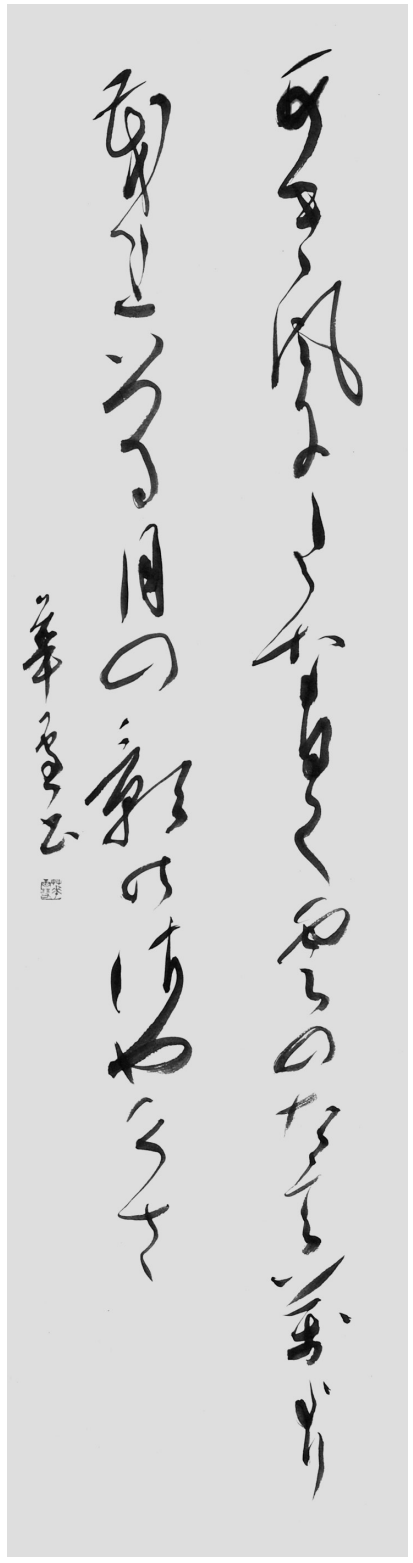 あき風にたなひく雲のたえまより
もれいつる月の影のさやけさ
華雪書